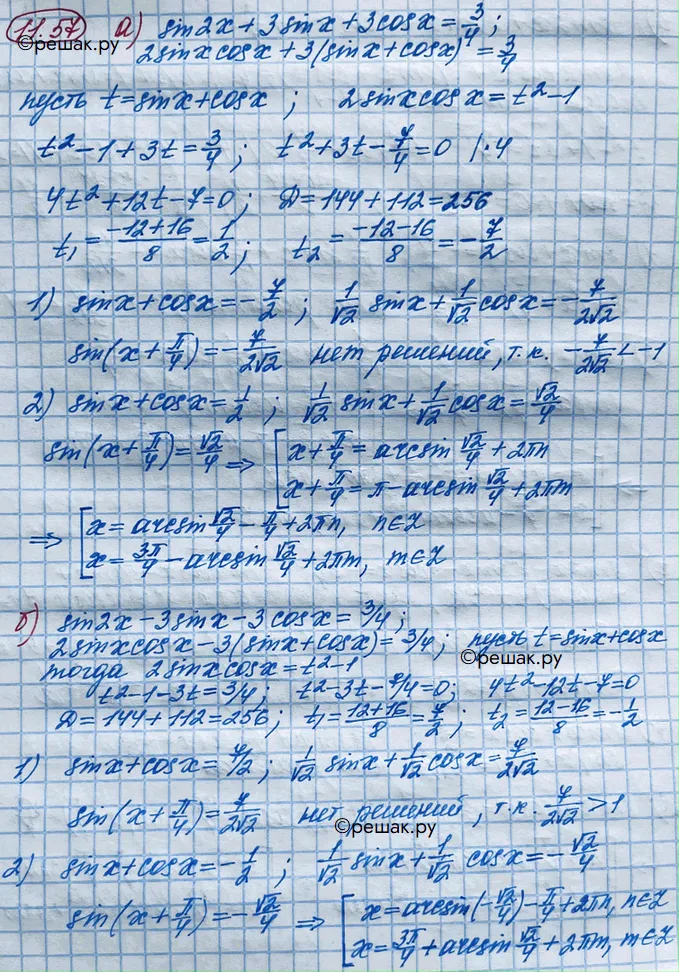 11.57 а) sin2x + 3sinx + 3cosx = 3/4;
©решак.ру
2sinxcosx + 3(sinx + cosx) = 3/4
пусть t = sinx + cosx ; 2sinxcosx = t² - 1
t² - 1 + 3t = 3/4 ; t² + 3t - 7/4 = 0 |·4
4t² + 12t - 7 = 0 ; D = 144 + 112 = 256
t₁ = (-12+16)/8 = 1/2 ; t₂ = (-12-16)/8 = -7/2
1) sinx + cosx = -7/2 ; 1/√2 sinx + 1/√2 cosx = -7/(2√2)
sin(x + π/4) = -7/(2√2) нет решений, т.к. -7/(2√2) < -1
2) sinx + cosx = 1/2 ; 1/√2 sinx + 1/√2 cosx = √2/4
sin(x + π/4) = √2/4 ⇒ [ x + π/4 = arcsin √2/4 + 2πn
x + π/4 = π - arcsin √2/4 + 2πm
⇒ [ x = arcsin √2/4 - π/4 + 2πn, n∈Z
x = 3π/4 - arcsin √2/4 + 2πm, m∈Z
б) sin2x - 3sinx - 3cosx = 3/4;
2sinxcosx - 3(sinx + cosx) = 3/4; пусть t = sinx + cosx
©решак.ру
тогда 2sinxcosx = t² - 1
t² - 1 - 3t = 3/4; t² - 3t - 7/4 = 0; 4t² - 12t - 7 = 0
D = 144 + 112 = 256 ; t₁ = (12+16)/8 = 7/2 ; t₂ = (12-16)/8 = -1/2
1) sinx + cosx = 7/2; 1/√2 sinx + 1/√2 cosx = 7/(2√2)
sin(x + π/4) = 7/(2√2) нет решений, т.к. 7/(2√2) > 1
©решак.ру
2) sinx + cosx = -1/2 ; 1/√2 sinx + 1/√2 cosx = -√2/4
sin(x + π/4) = -√2/4 ⇒ [ x = arcsin(-√2/4) - π/4 + 2πn, n∈Z
x = 3π/4 + arcsin √2/4 + 2πm, m∈Z